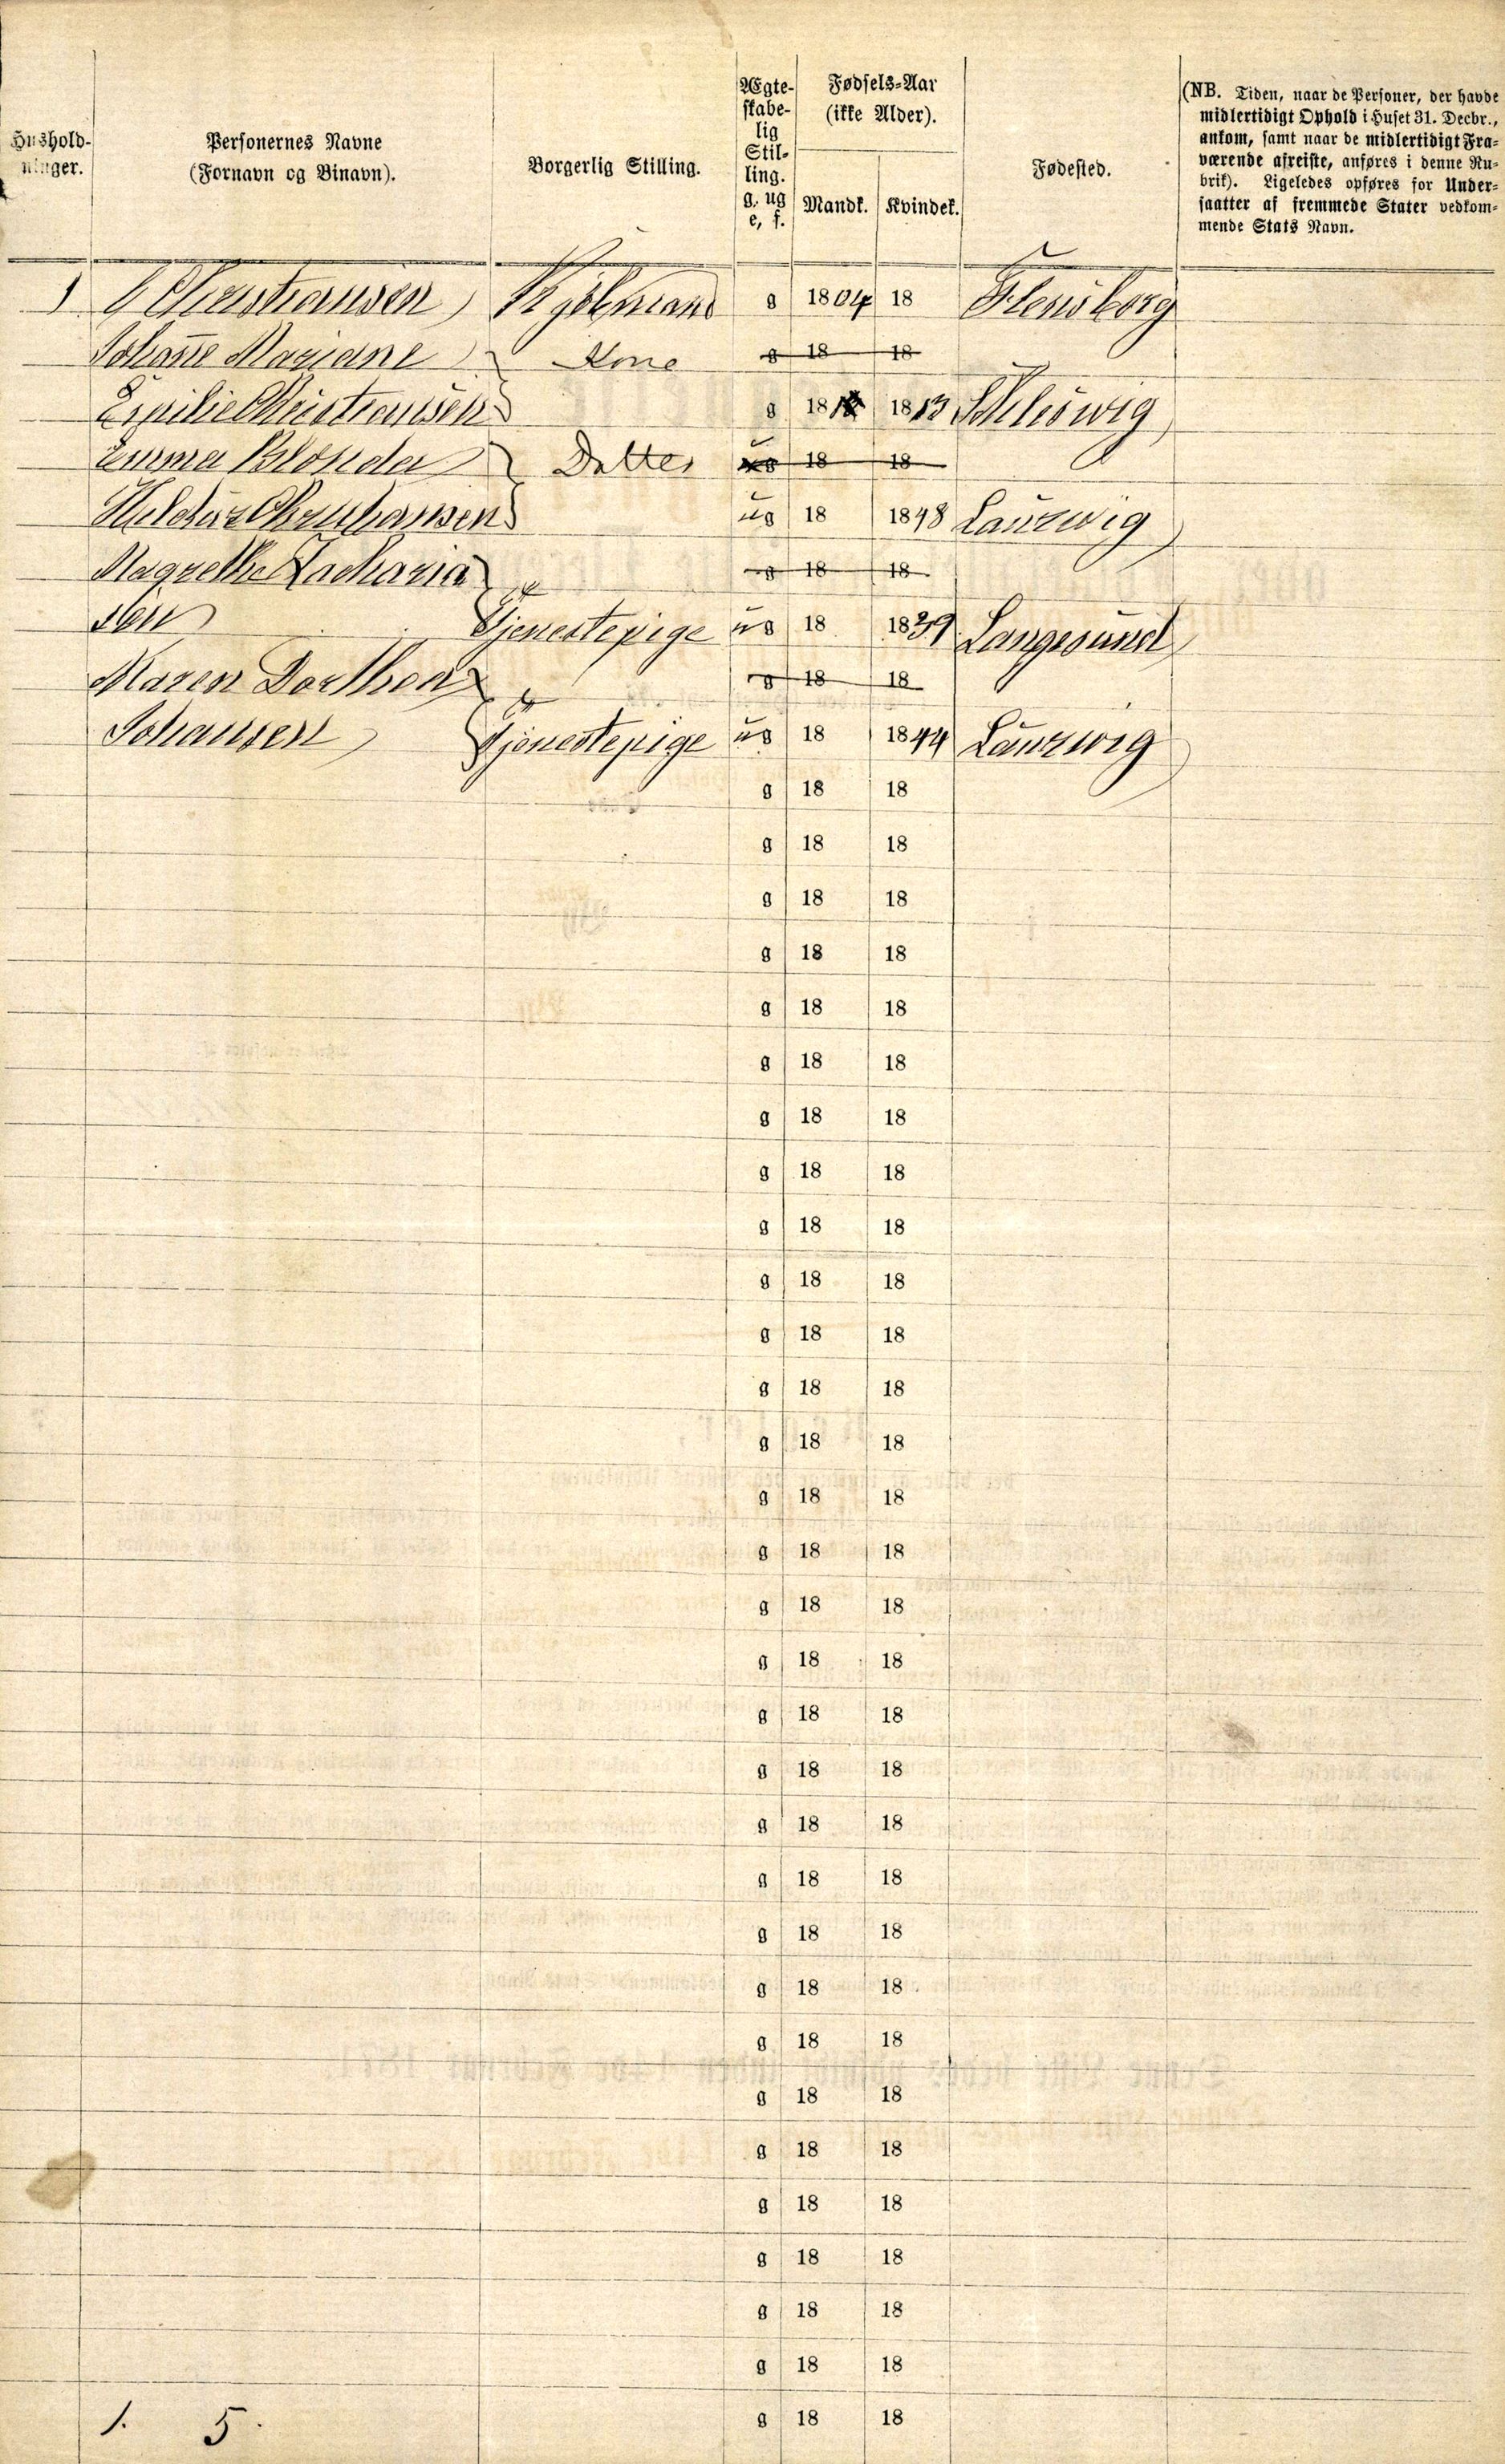 Hushold-
ninger.
Personernes Navne
(Fornavn og Binavn).
Borgerlig Stilling.
Ægte-
skabe-
lig
Stil-
ling.
g. ug
e, f.
Fødsels-Aar
(ikke Alder).
Mandk. Kvindek.
Fødested.
(NB. Tiden, naar de Personer, der havde
midlertidigt Ophold i Huset 31. Decbr.,
ankom, samt naar de midlertidigt Fra-
værende afreiste, anføres i denne Ru-
brik). Ligeledes opføres for Under-
saatter af fremmede Stater vedkom-
mende Stats Navn.
1 Christiansen Kjøbmand g 1804 18 Flensborg
Johanne Mariane Kone g 18 18
Emilie Christiansen g 18 1813 Schleswig
Emma Blonda Datter 18 18
Christiansen ug 18 1848 Laurwig
Magrethe Zacharia g 18 18
sen Tjenestepige ug 18 1839 Langesund
Maren Dorthea g 18 18
Johansen Tjenestepige ug 18 1844 Laurwig
g 18 18
g 18 18
g 18 18
g 18 18
g 18 18
g 18 18
g 18 18
g 18 18
g 18 18
g 18 18
g 18 18
g 18 18
g 18 18
g 18 18
g 18 18
g 18 18
g 18 18
g 18 18
g 18 18
g 18 18
g 18 18
g 18 18
g 18 18
g 18 18
g 18 18
g 18 18
g 18 18
g 18 18
g 18 18
g 18 18
1. 5. g 18 18